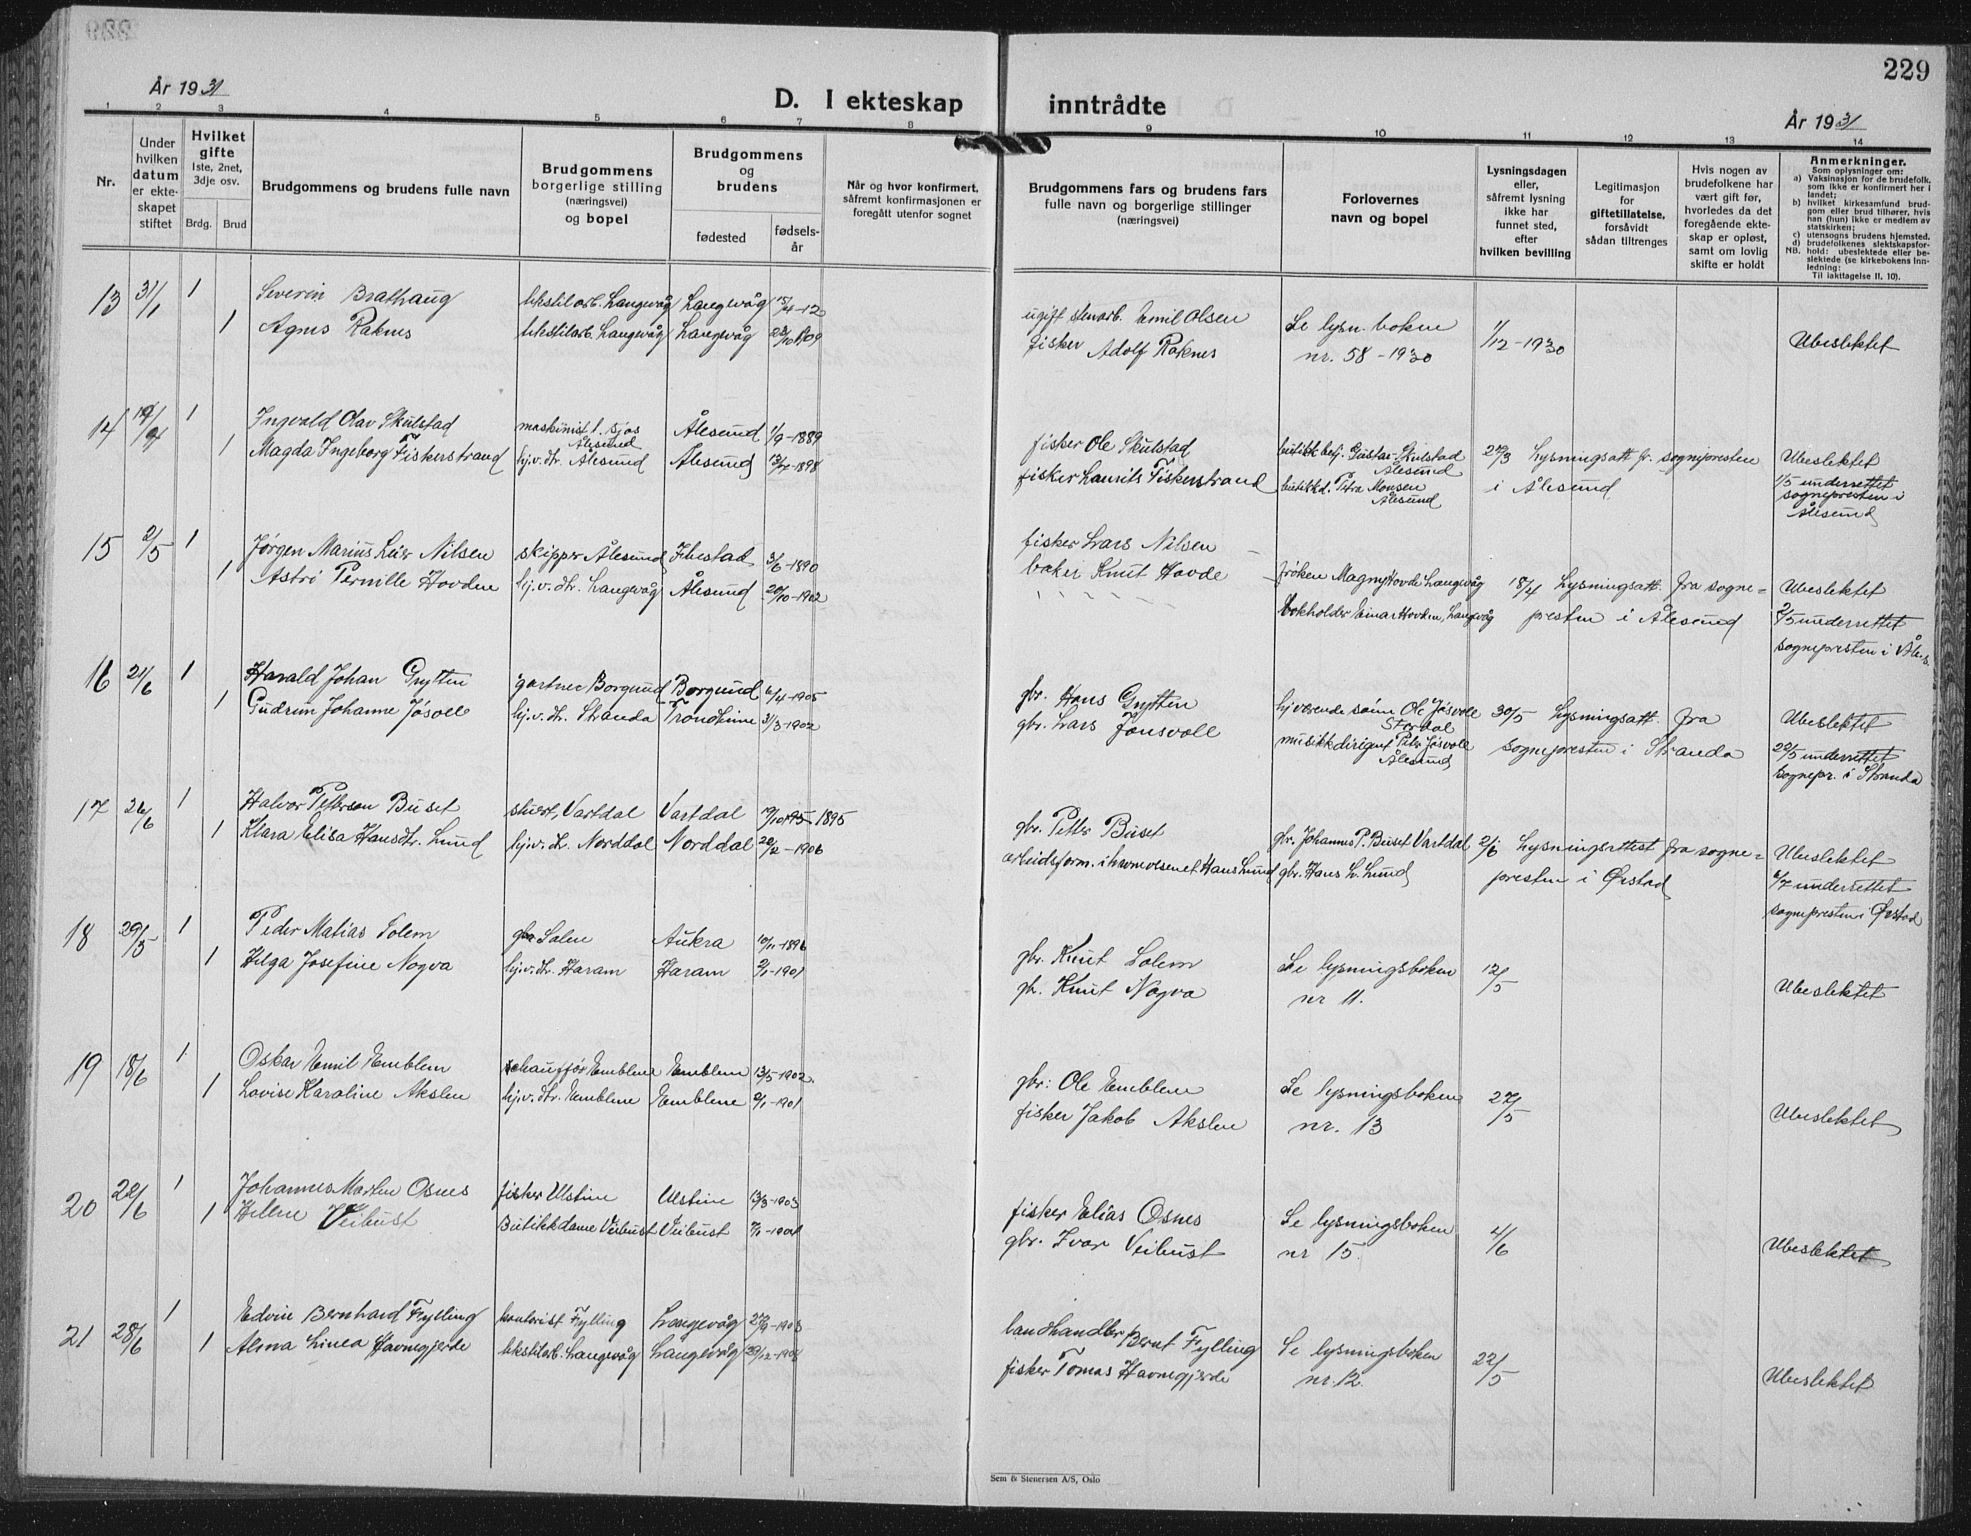 229
År 1931
D. I ekteskap inntrådte
År 1931
1 2 3 4 5 6 7 8 9 10 11 12 13 14
Nr.
Under hvilken datum er ekteskapet stiftet
Hvilket gifte
1ste, 2net, 3dje osv.
Brdg. Brud
Brudgommens og brudens fulle navn
Brudgommens borgerlige stilling (næringsvei) og bopel
Brudgommens og brudens
fødested
fødselsår
Når og hvor konfirmert, såfremt konfirmasjonen er foregått utenfor sognet
Brudgommens fars og brudens fars fulle navn og borgerlige stillinger (næringsvei)
Forlovernes navn og bopel
Lysningsdagen eller, såfremt lysning ikke har funnet sted, efter hvilken bevilling
Legitimasjon for giftetillatelse, forsåvidt sådan tiltrenges
Hvis nogen av brudefolkene har vært gift før, hvorledes da det foregående ekteskap er opløst, samt om lovlig skifte er holdt
Anmerkninger.
Som oplysninger om:
a) Vaksinasjon for de brudefolk. som ikke er konfirmert her i landet;
b) hvilket kirkesamfund brudgom eller brud tilhører, hvis han (hun) ikke er medlem av statskirken;
c) utensogns brudens hjemsted.
d) brudefolkenes slektskapsforhold: ubeslektede eller beslektede (se kirkebokens Innledning:
NB.
Til iakttagelse II. 10).
13 31/1 1 Severin Brathaug tekstilarb. Langevåg Langevåg 15/4-12 ugift stenarb. Emil Olsen Se lysn. boken 1/12-1930
1 Agnes Raknes tekstilarb. Langevåg Langevåg 23/10 1909 fisker Adolf Raknes nr. 58-1930 Ubeslektet
14 19/4 1 Ingvald Olav Skulstad maskinist t. sjøs Ålesund Ålesund 1/9-1889 fisker Ole Skulstad butikkbetj. Gustav Skulstad Ålesund 27/3 Lysningsatt. fr. sognepresten Ubeslektet
1 Magda Ingeborg Fiskerstrand hj.v.dtr. Ålesund Ålesund 13/12-1898 fisker Laurits Fiskerstrand butikkd. Petra Monsen Ålesund i Ålesund 1/5 underrettet sognepresten i Ålesund
15 2/5 1 Jørgen Marius Leir Nilsen skipper Ålesund Ibestad 3/6-1890 fisker Lars Nilsen frøken Magny Hovde Langevåg 18/4 Lysningsatt. fra sogne= Ubeslektet
1 Astri Pernille Hovden hj.v.dtr. Langevåg Ålesund 20/10-1902 baker Knut Hovde bokholder Einar Hovden, Langevåg presten i Ålesund 2/5 underrettet
sognepresten i Åles.
16 21/6 1 Harald Johan Grytten gartner Borgund Borgund 6/4-1905 gbr. Hans Grytten hjværende sønn Ole Jøsvoll Stordal 30/5 Lysningsatt. fra Ubeslektet
1 Gudrun Johanne Jøsvoll hj.v.dtr. Stranda Trondheim 31/3-1902 gbr. Lars Jonsvoll musikkdirigent Peter Jøsvoll Ålesund sognepresten i Stranda 22/5 underrettet
sognepr. i Stranda
17 26/6 1 Halvor Petterson Buset stuert, Vartdal Vartdal 19/10 195 1895 gbr. Petter Buset gbr. Johannes P. Buset Vartdal 2/6 Lysningsattest fra sogne= Ubeslektet
1 Klara Elisa Hansdtr. Lund hj.v.dtr. Norddal Norddal 20/2-1906 arbeidsform. i havnevesenet Hans Lund gbr. Hans L. Lund presten i Ørstad 6/7 underrettet
sognepresten i Ørstad
18 29/5 1 Peder Matias Solem gbr. Solem Aukra 10/11-1896 gbr. Knut Solem Se lysningsboken 12/5
1 Helga Josefine Nogva hj.v.dtr. Haram Haram 2/1-1901 gbr. Knut Nogva nr 11. Ubeslektet
19 18/6 1 Oskar Emil Emblem schauffør Emblem Emblem 13/5-1902 gbr: Ole Emblem Se lysningsboken 27/5
1 Lovise Karoline Akslen hj.v.dtr. Emblem Emblem 9/1-1901 fisker Jakob Akslen nr. 13 Ubeslektet
20 22/6 1 Johannes Marten Osnes fisker Ulstein Ulstein 13/3-1903 fisker Elias Osnes Se lysningsboken 4/6
1 Helene Veibust Butikkdame Veibust Veibust 7/1-1904 gbr. Ivar Veibust nr 15. Ubeslektet
21 28/6 1 Edvin Bernhard Fylling kontorist Fylling Langevåg 27/9-1903 landhandler Bernt Fylling Se lysningsboken 22/5
1 Alma Linea Havnegjerde tekstilarb. Langevåg Langevåg 29/12-1908 fisker Tomas Havnegjerde nr. 12. Ubeslektet
Sem & Stenersen A/S, Oslo